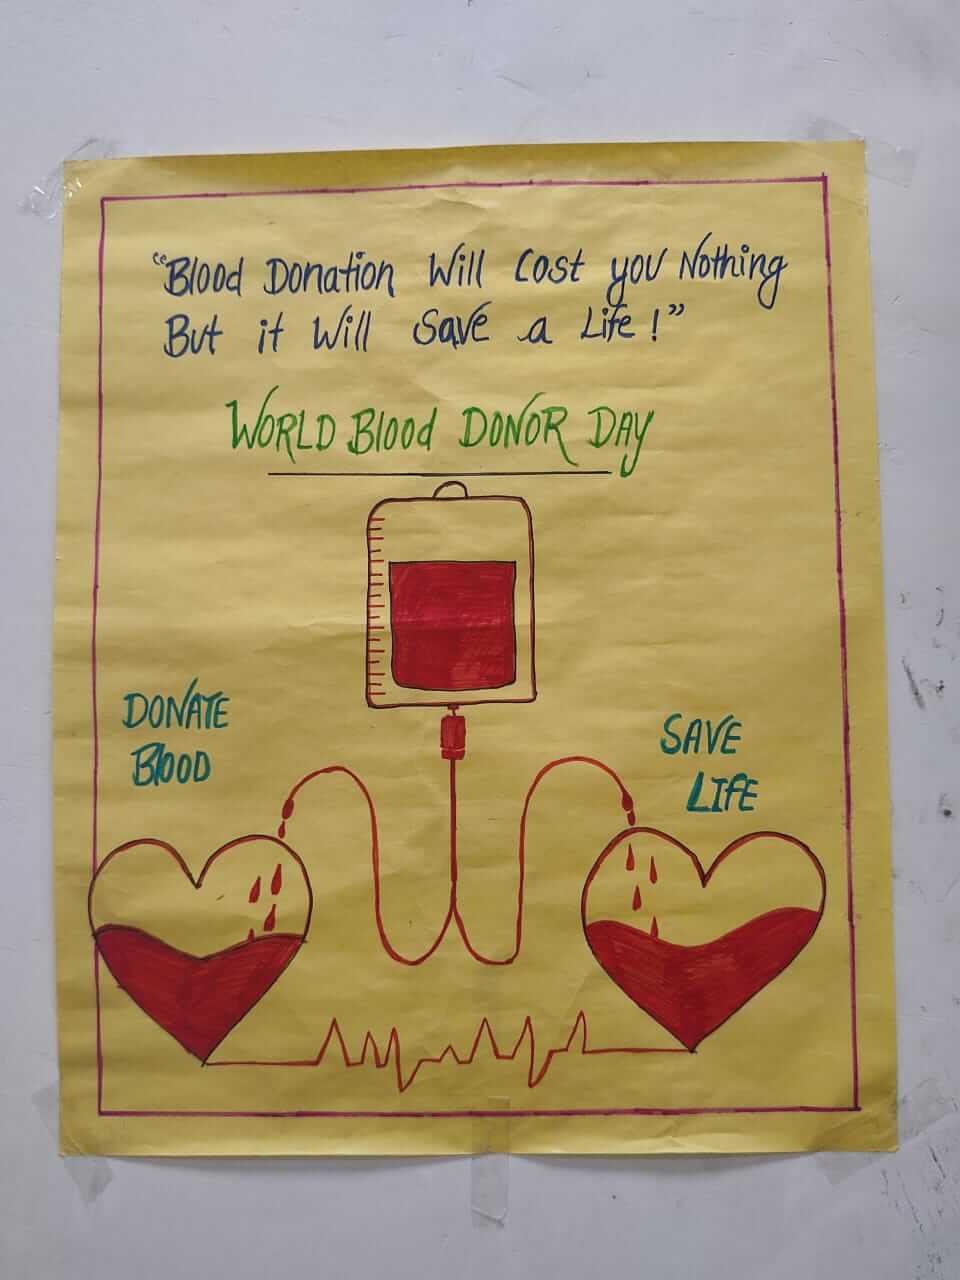 "Blood Donation Will Cost you Nothing
But it Will Save a Life!"
WORLD Blood DONOR DAY
DONATE
BlOOD
SAVE
LIFE